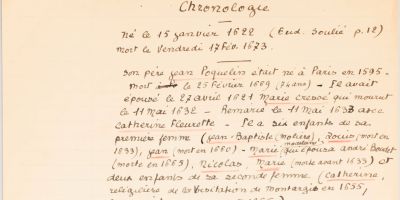 Chronologie
Né le 15 janvier 1622 (Eud. Soulié p.12)
mort le vendredi 17 fév. 1673.
Son père Jean Poquelin était né à Paris en 1595 -
mort le 25 février 1669 (74 ans) - Il avait
épousé le 27 avril 1621 Marie Cressé qui mourut
le 11 mai 1632 - Remarié le 11 mai 1633 avec
Catherine Fleurette - Il a six enfants de sa
première femme (Jean-Baptiste (Molière), Louis (mort en
1633), Jean (mort en 1660) - Marie Madeleine (qui épousa André Boudet
(morte en 1665), Nicolas, Marie (morte avant 1633) et
deux enfants de sa seconde femme (Catherine,
religieuse de la Visitation de Montargis en 1655,